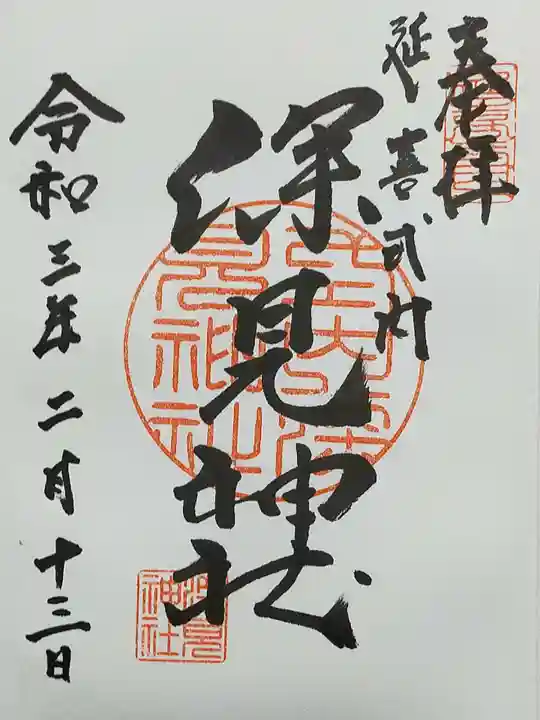 奉拝
延喜式内
深見神社
令和三年二月十三日
深見
神社